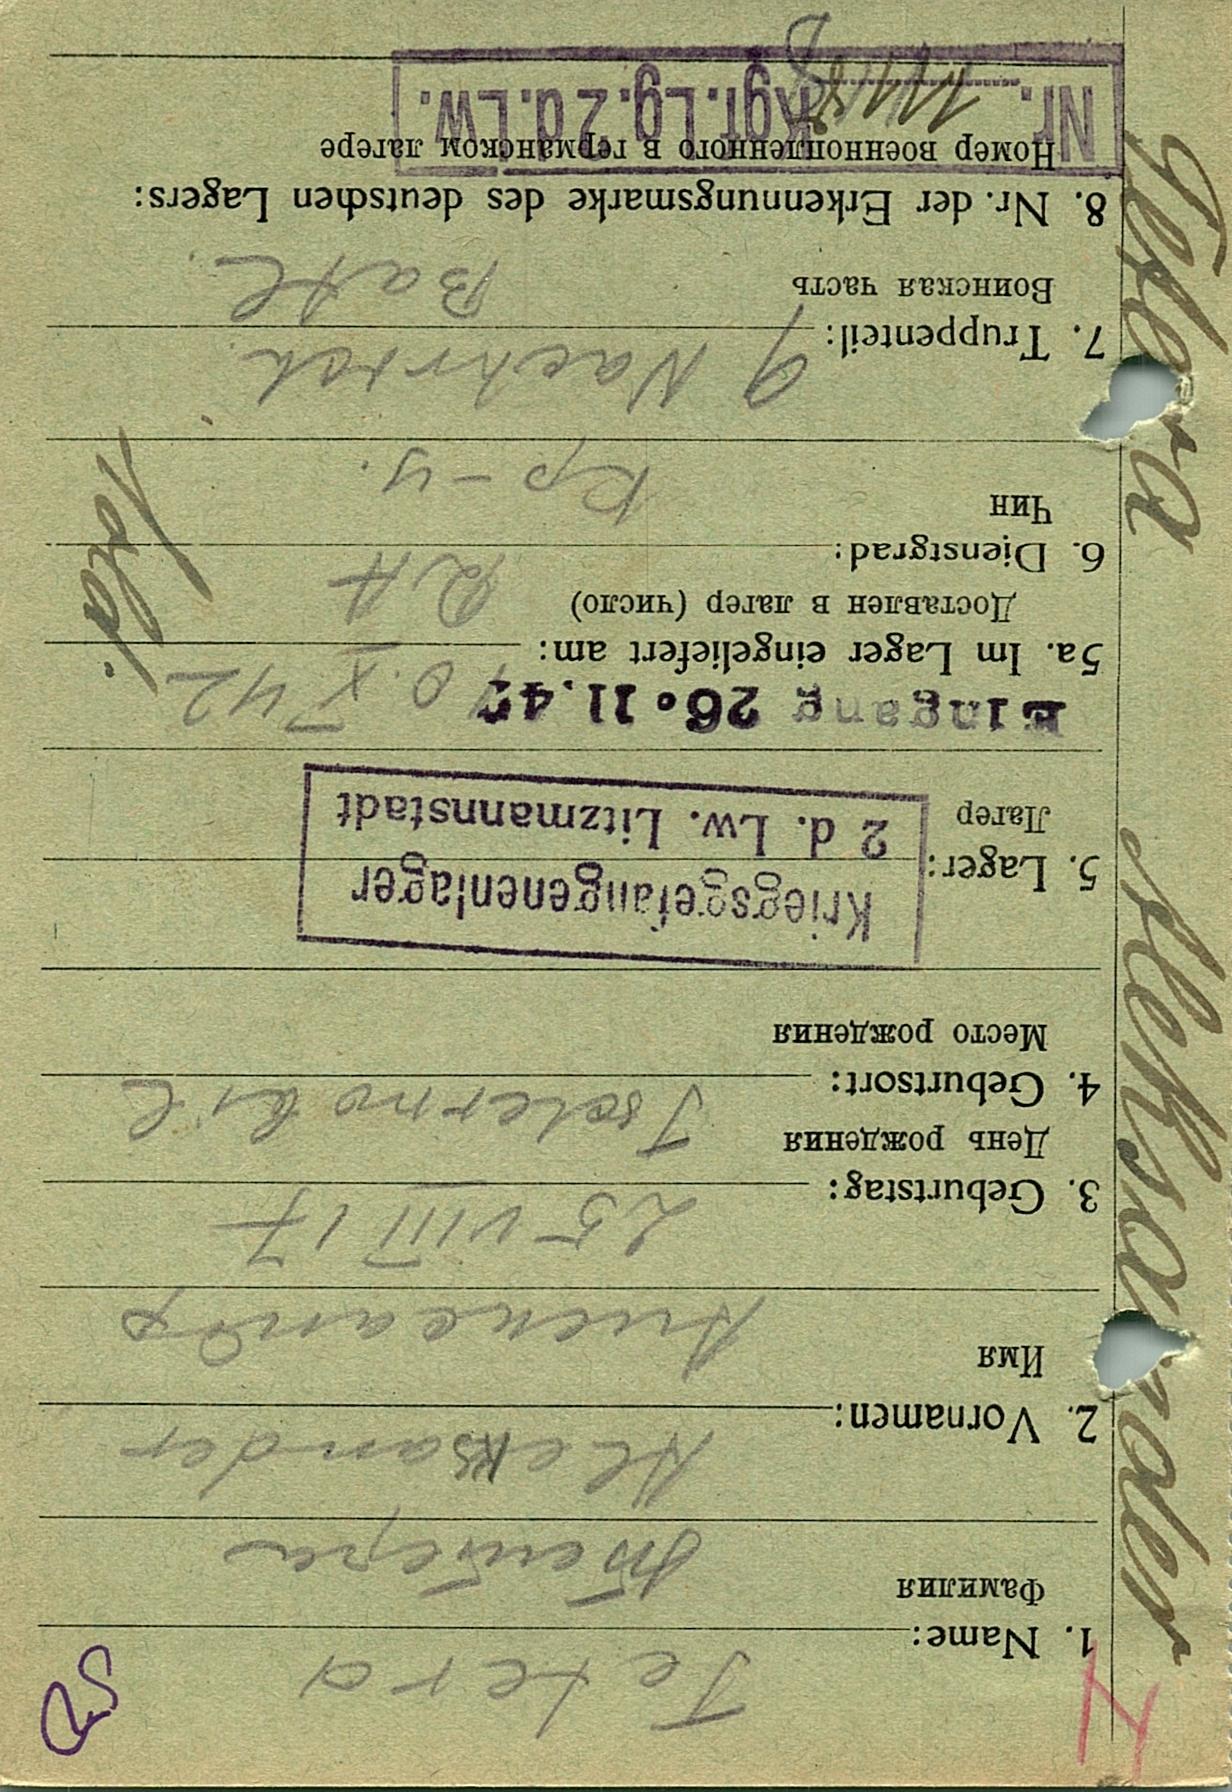 1. Name: Tetera
Фамилия Тетера
2. Vornamen: Aleksander
Имя Александр
3. Geburtstag: 25 VIII 17
День рождения
4. Geburtsort: Tschernobil
Место рождения
5. Lager: Kriegsgefangenenlager
Лагер 2 d. Lw. Litzmannstadt
Eingang 26.11.42
5a. Im Lager eingeliefert am: X 42
Доставлен в лагер (число)
6. Dienstgrad: R.A
Чин Кр-ц.
Sold.
7. Truppenteil: 9 Nachrich
Воинская часть Batl.
8. Nr. der Erkennungsmarke des deutschen Lagers:
Номер военнопленного в германском лагере
Nr. Kgf.Lg.2d.Lw.
Aleksander